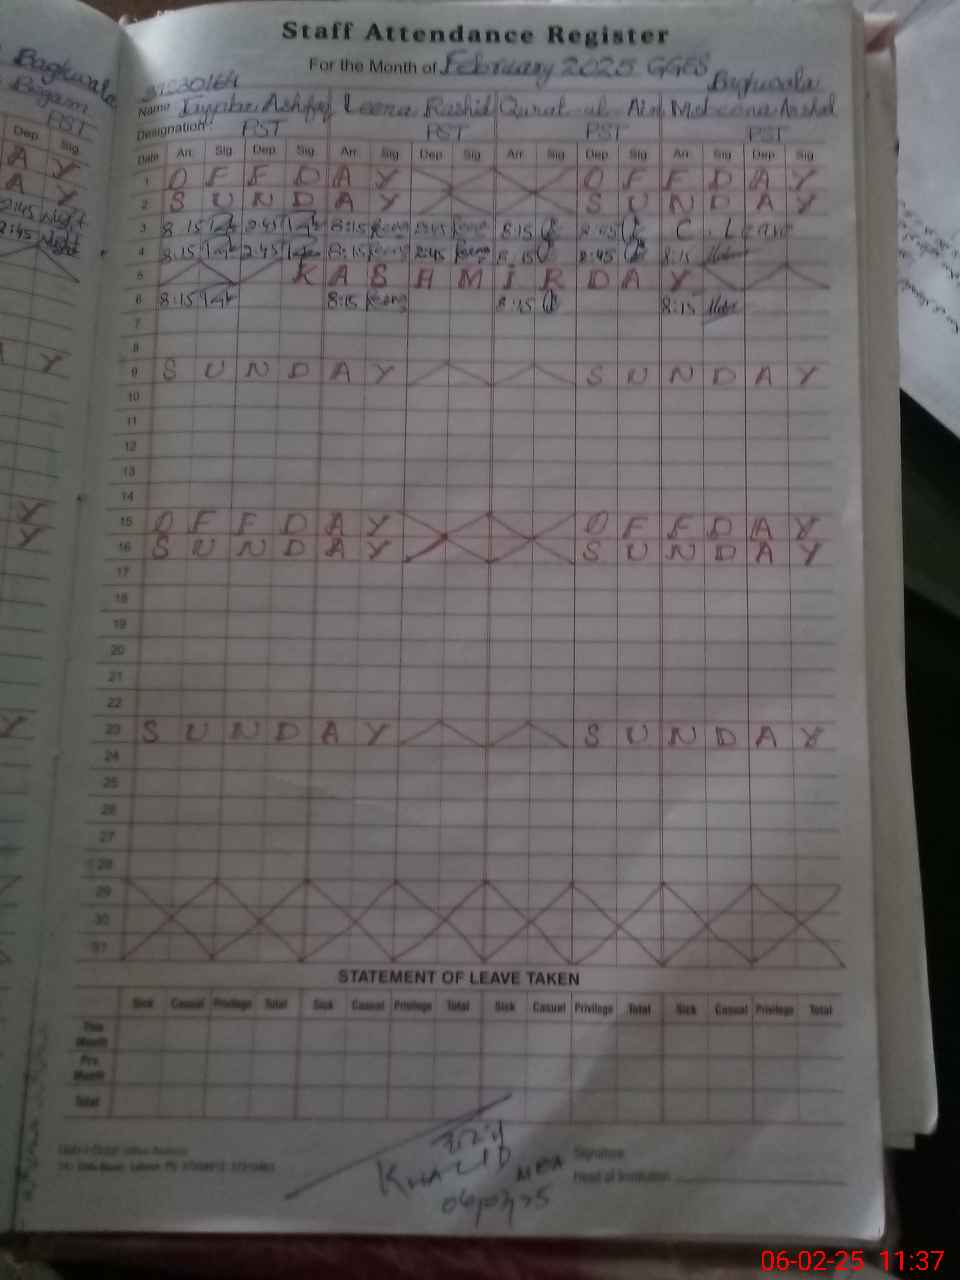 Staff Attendance Register
For the Month of February 2025 GGES Baghwala
Name Tayaba Ashfaq Leena Rashid Qurat-ul-Ain Mobeena Arshad
Designation: PST PST PST PST
Date Arr. Sig. Dep. Sig. Arr. Sig Dep. Sig Arr. Sig Dep. Sig Arr. Sig Dep. Sig
1 O F F D A Y O F F D A Y
2 S U N D A Y S U N D A Y
3 8:15 2:45 8:15 2:45 8:15 2:45 C. Leave
4 8:15 2:45 8:15 2:45 8:15 2:45 8:15
5 K A S H M I R D A Y
6 8:15 8:15 8:15 8:15
7
8
9 S U N D A Y S U N D A Y
10
11
12
13
14
15 O F F D A Y O F F D A Y
16 S U N D A Y S U N D A Y
17
18
19
20
21
22
23 S U N D A Y S U N D A Y
24
25
26
27
28
29
30
31
STATEMENT OF LEAVE TAKEN
Sick Casual Privilege Total Sick Casual Privilege Total Sick Casual Privilege Total Sick Casual Privilege Total
This Month
Pre. Month
Total
KHALID MEA
Signature
Head of Institution
Baghwala
Begam
PST
Dep. Sig.
A Y
A Y
2:45
2:45
A Y
Y
Y
Y
06-02-25 11:37